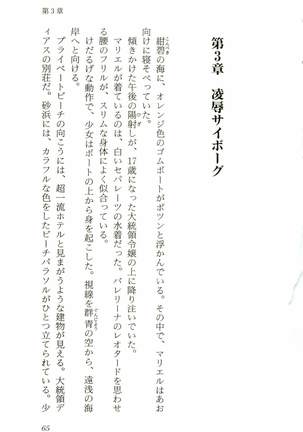 第3章
第3章　凌辱サイボーグ
紺碧の海に、オレンジ色のゴムボートがポツンと浮かんでいる。その中で、マリエルはあお
向けに寝そべっていた。
傾きかけた午後の陽射しが、17歳になった大統領令嬢の上に降り注いでいた。
マリエルが着ているのは、白いセパレーツの水着だった。バレリーナのレオタードを思わせ
る腰のフリルが、スリムな身体によく似合っている。
けだるげな動作で、少女はボートの上から身を起こした。視線を群青の空から、遠浅の海
岸へと向ける。
プライベートビーチの向こうには、超一流ホテルと見まがうような建物が見える。大統領デ
ィアスの別荘だ。砂浜には、カラフルな色をしたビーチパラソルがひとつ立てられている。少
65